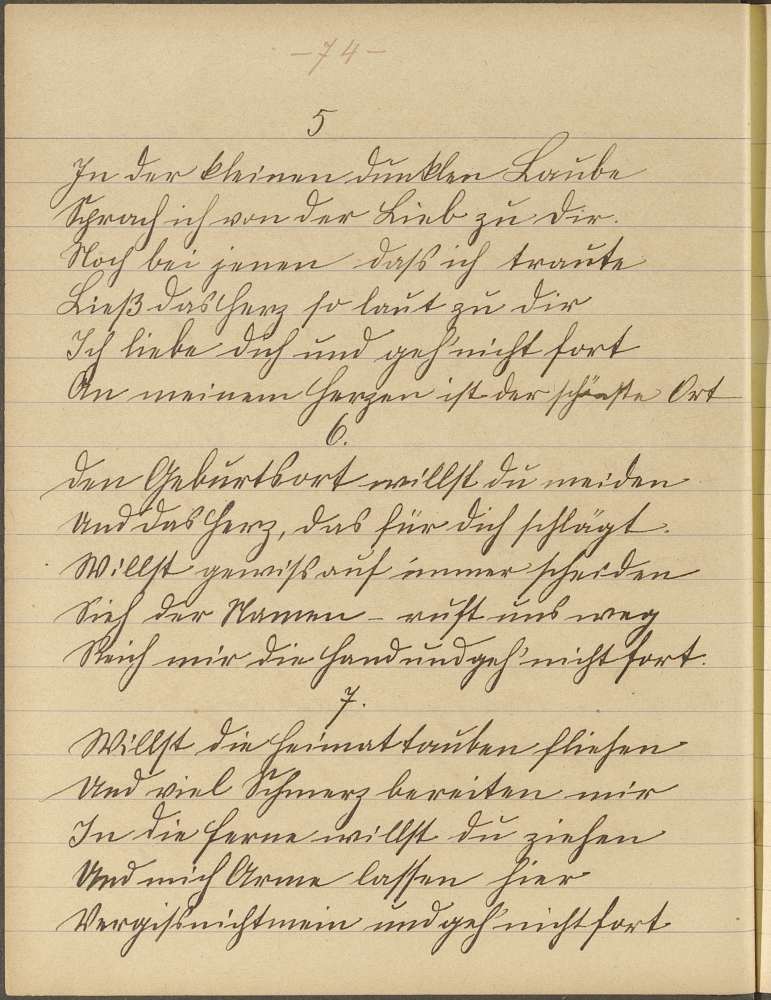 -74-
5
In der kleinen dunklen Laube
Sprach ich von der Lieb zu Dir.
Noch bei jenen dass ich traute
Ließ das Herz so laut zu dir
Ich liebe dich und geh' nicht fort
An meinem Herzen ist der schönste Ort
6.
Den Geburtsort willst du meiden
Und das Herz, das für dich schlägt.
Willst gewiss auf immer scheiden
Sieh der Namen - ruft uns weg
Reich mir die Hand und geh' nicht fort.
7.
Willst die Heimat tauben fliehen
Und viel Schmerz bereiten mir
In die Ferne willst du ziehen
Und mich Arme lassen hier
Vergissnichtmein und geh' nicht fort